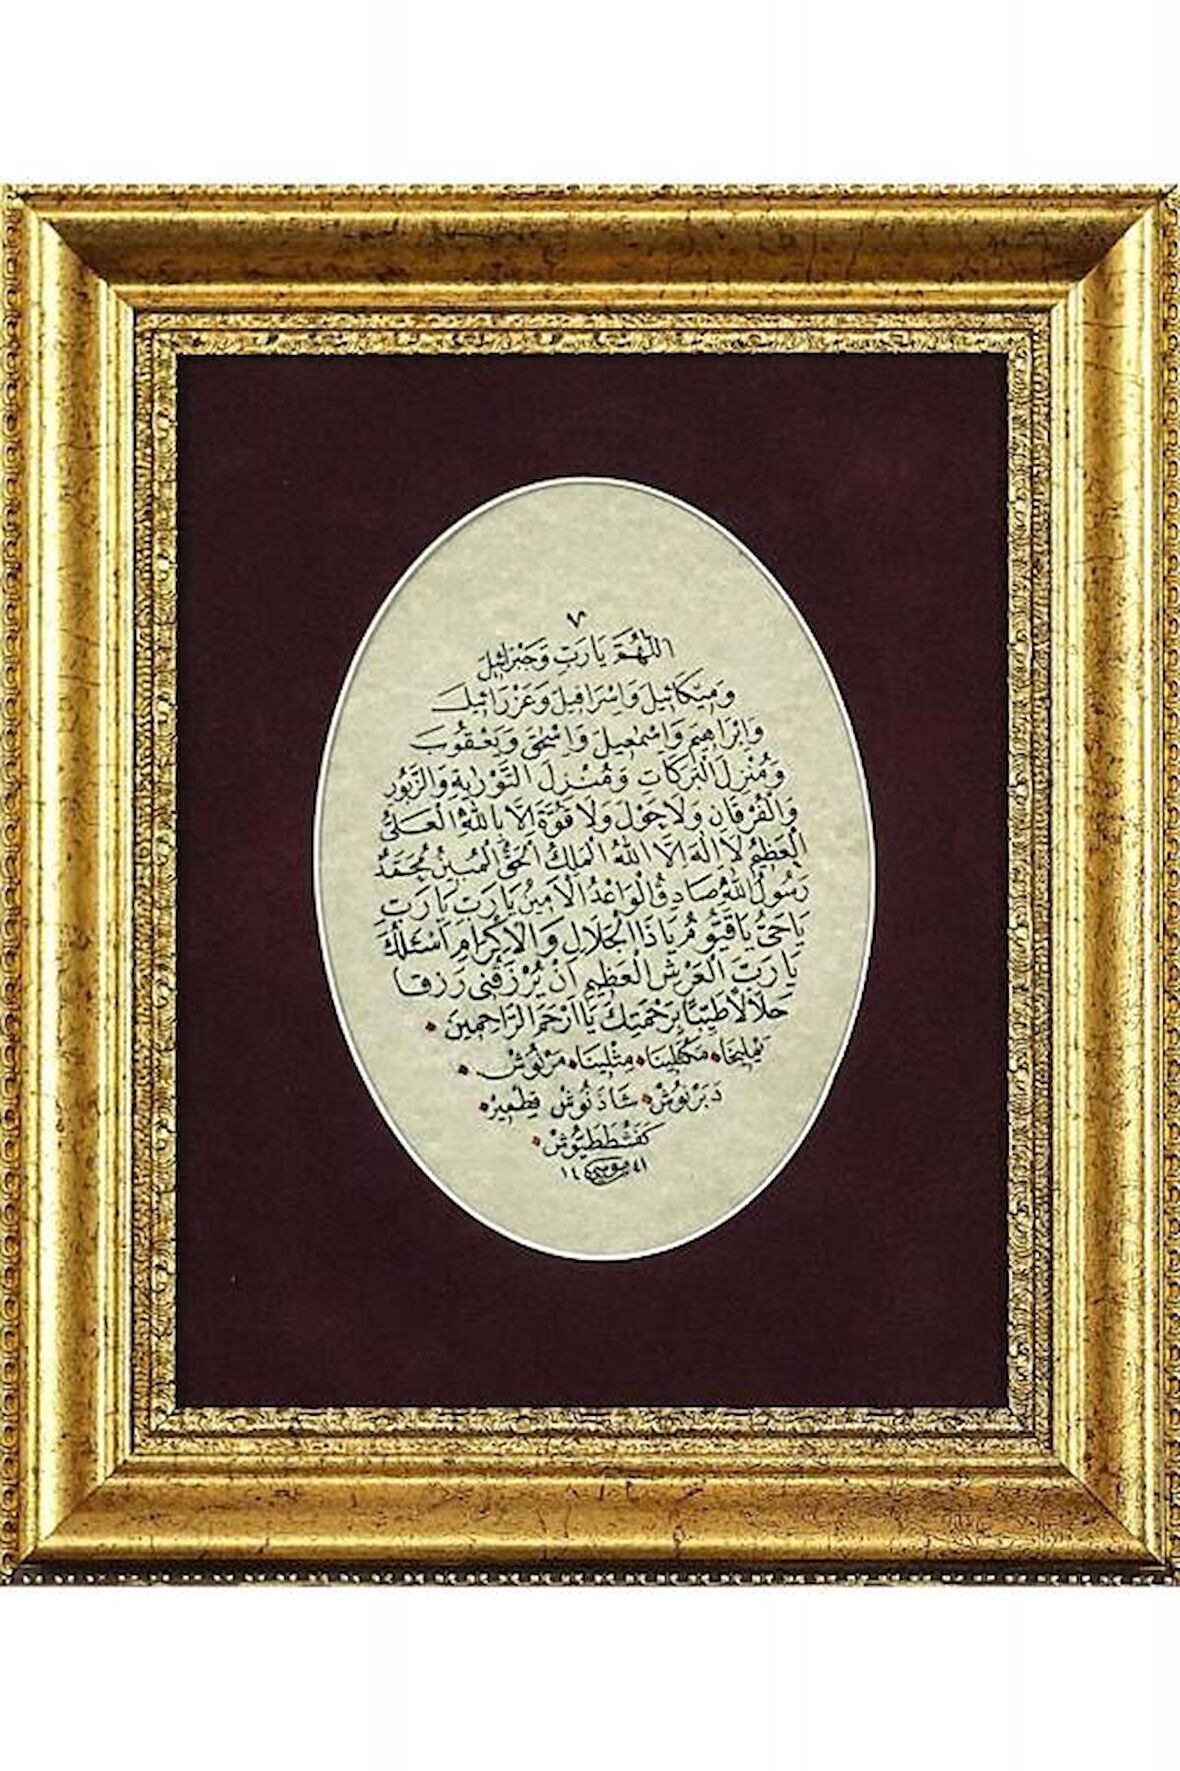 اللّٰهُمَّ يَا رَبِّ وَجَبْرَائِيلَ
وَمِيكَائِيلَ وَاِسْرَافِيلَ وَعَزْرَائِيلَ
وَاِبْرَاهِيمَ وَاِسْمٰعِيلَ وَاِسْحٰقَ وَيَعْقُوبَ
وَمُنْزِلَ الْبَرَكَاتِ وَمُنْزِلَ التَّوْرٰيةِ وَالزَّبُورِ
وَالْفُرْقَانِ وَلَا حَوْلَ وَلَا قُوَّةَ اِلَّا بِاللّٰهِ الْعَلِيِّ
الْعَظِيمِ لَا اِلٰهَ اِلَّا اللّٰهُ الْمَلِكُ الْحَقُّ الْمُبِينُ مُحَمَّدٌ
رَسُولُ اللّٰهِ صَادِقُ الْوَاعْدُ الْاَمِينُ يَا رَبِّ يَا رَبِّ
يَا حَيُّ يَا قَيُّومُ يَا ذَا الْجَلَالِ وَالْاِكْرَامِ اَسْئَلُكَ
يَا رَبَّ الْعَرْشِ الْعَظِيمِ اَنْ يَرْزُقَنِي رَزِقًا
حَلَالًا طَيِّبًا بِرَحْمَتِكَ يَا اَرْحَمَ الرَّاحِمِينَ
يَمْلِيخَا مَكْثَلِينَا مِثْلِينَا مَرْنُوشْ
دَبَرْنُوشْ شَاذَنُوشْ قِطْمِيرْ
كَفَشْطَطَيُّوشْ
٤١ موسى ١٤